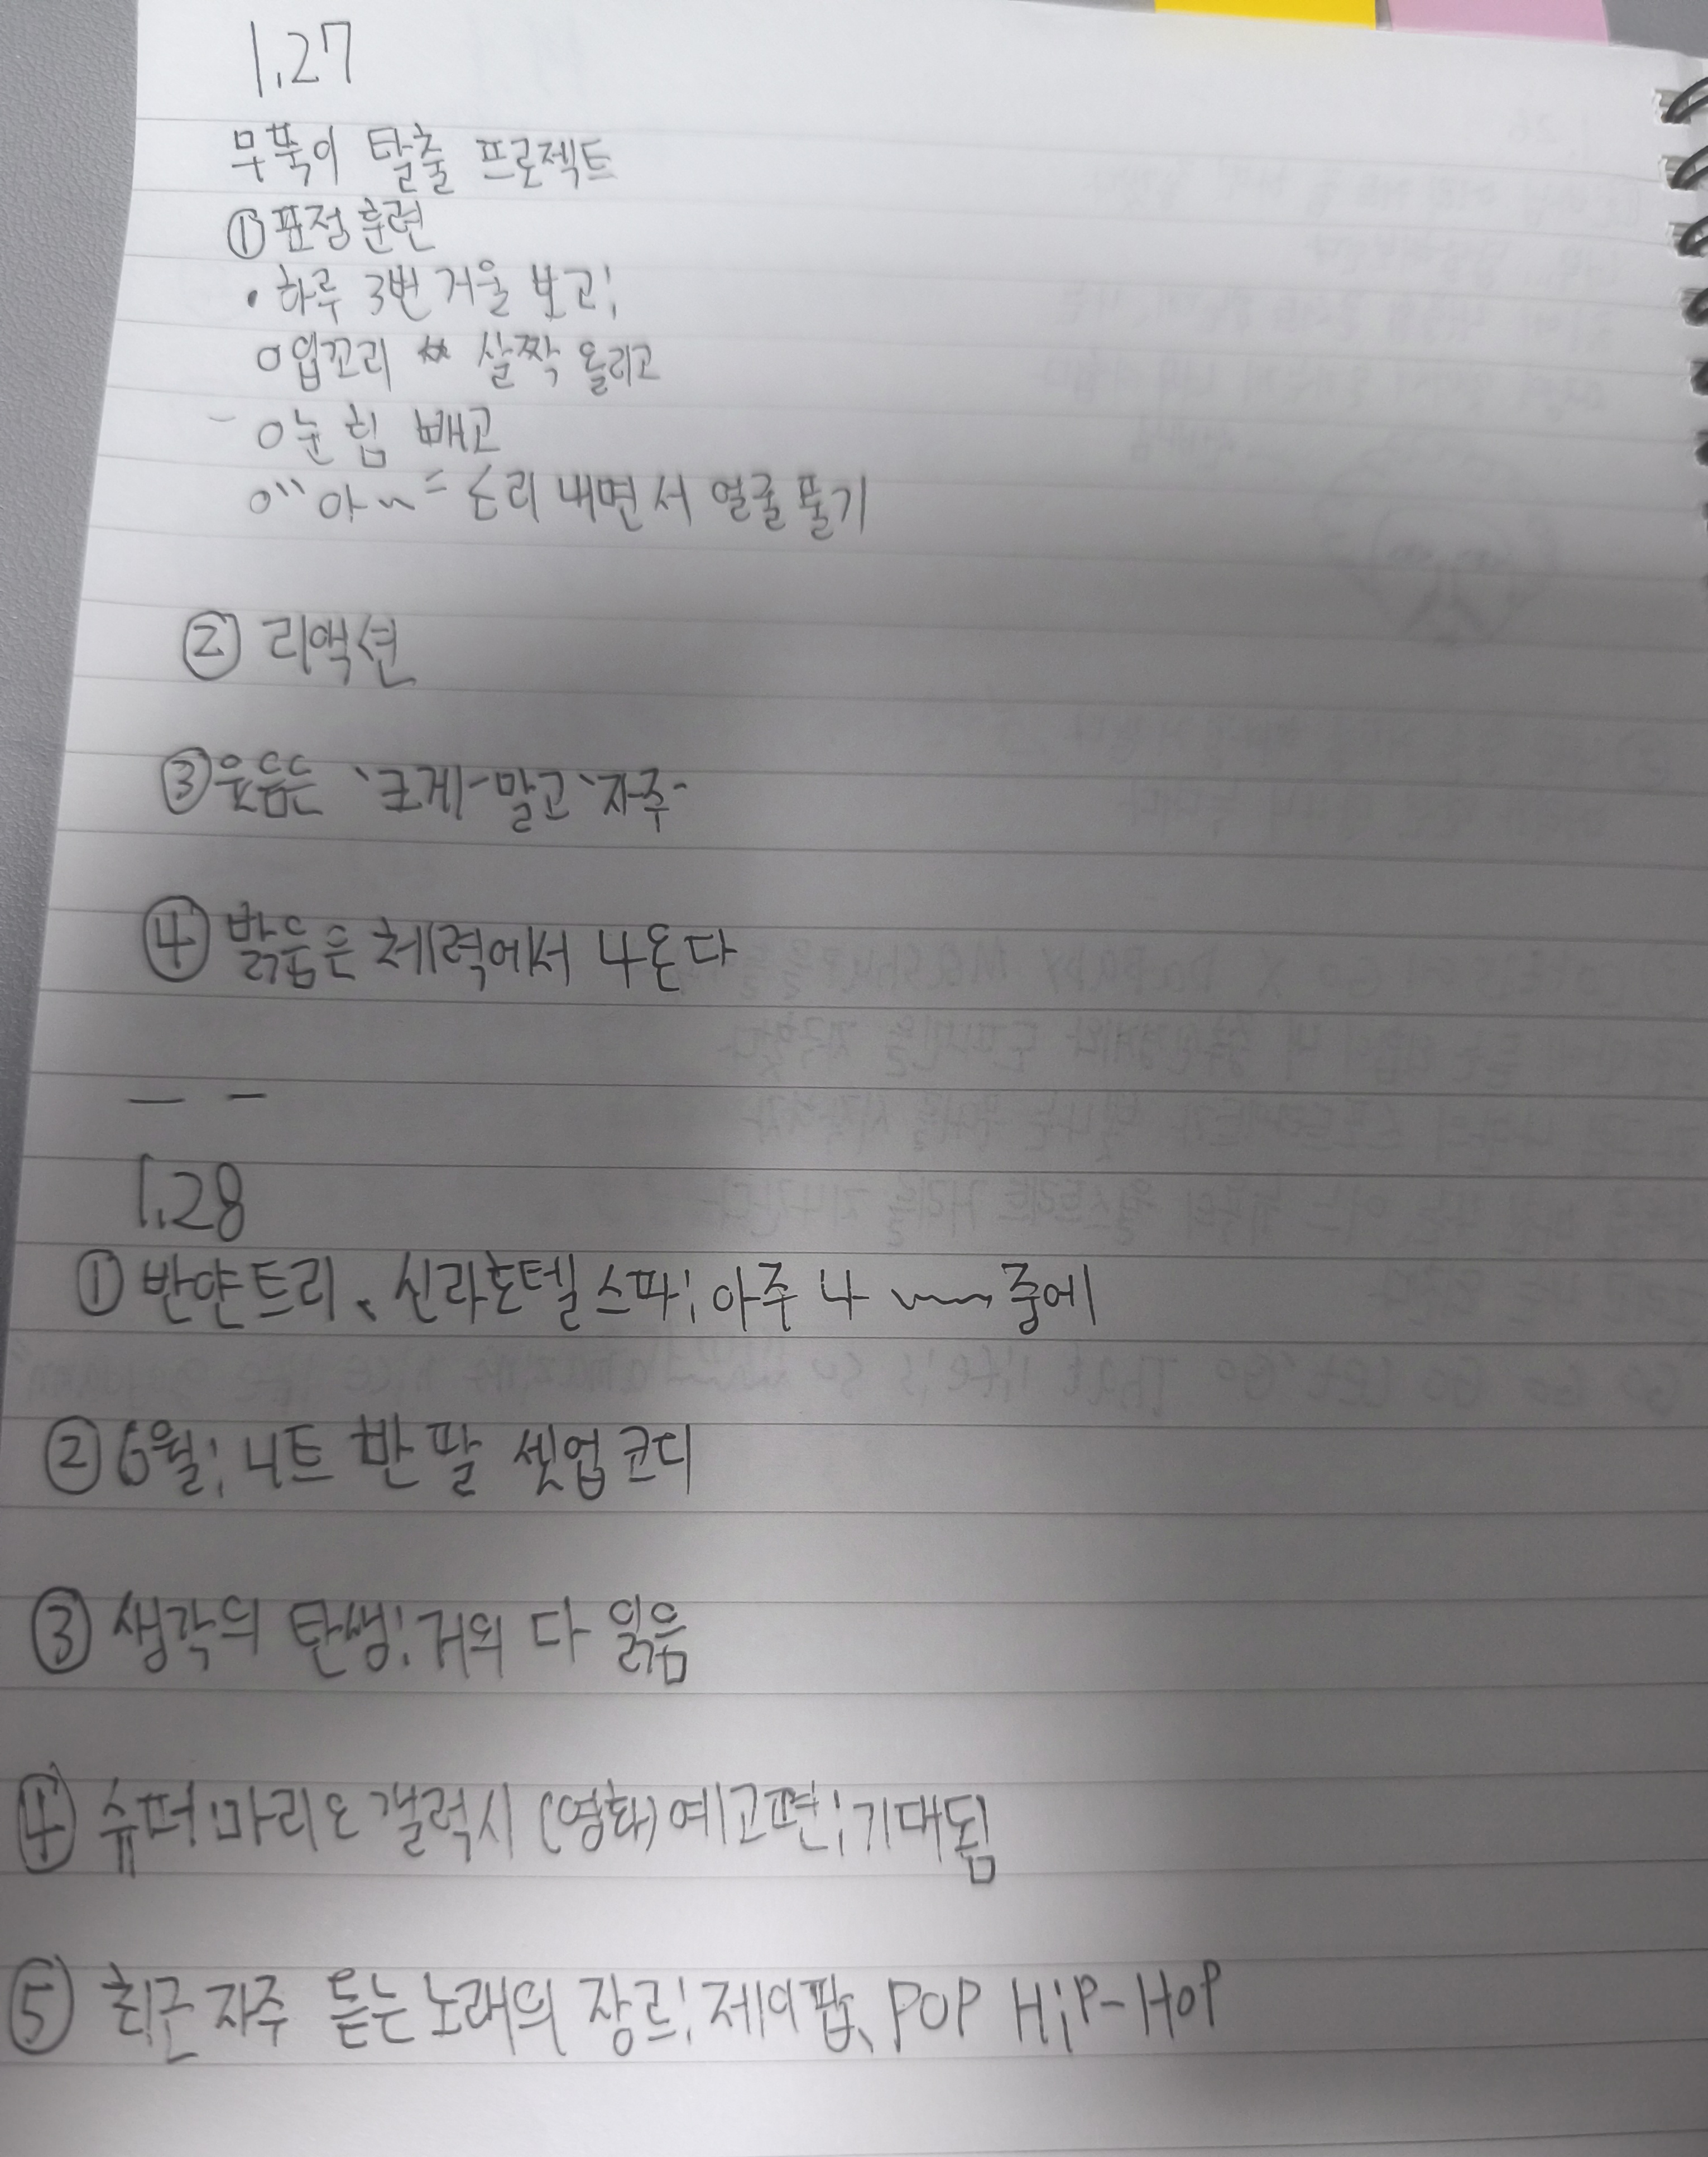 1.27
무뚝이 탈출 프로젝트
① 표정 훈련
• 하루 3번 거울 보고;
o 입꼬리 살짝 올리고
- o 눈 힘 빼고
o "아~" 소리 내면서 얼굴 풀기
② 리액션
③ 웃음은 '크게' 말고 '자주'
④ 밝음은 체력에서 나온다
— —
1.28
① 반얀트리、신라호텔 스파; 아주 나 〰 중에
② 6월; 니트 반팔 셋업 코디
③ 생각의 탄생; 거의 다 읽음
④ 슈퍼 마리오 갤럭시 (영화) 예고편; 기대됨
⑤ 최근 자주 듣는 노래의 장르; 제이팝、POP HiP-HOP